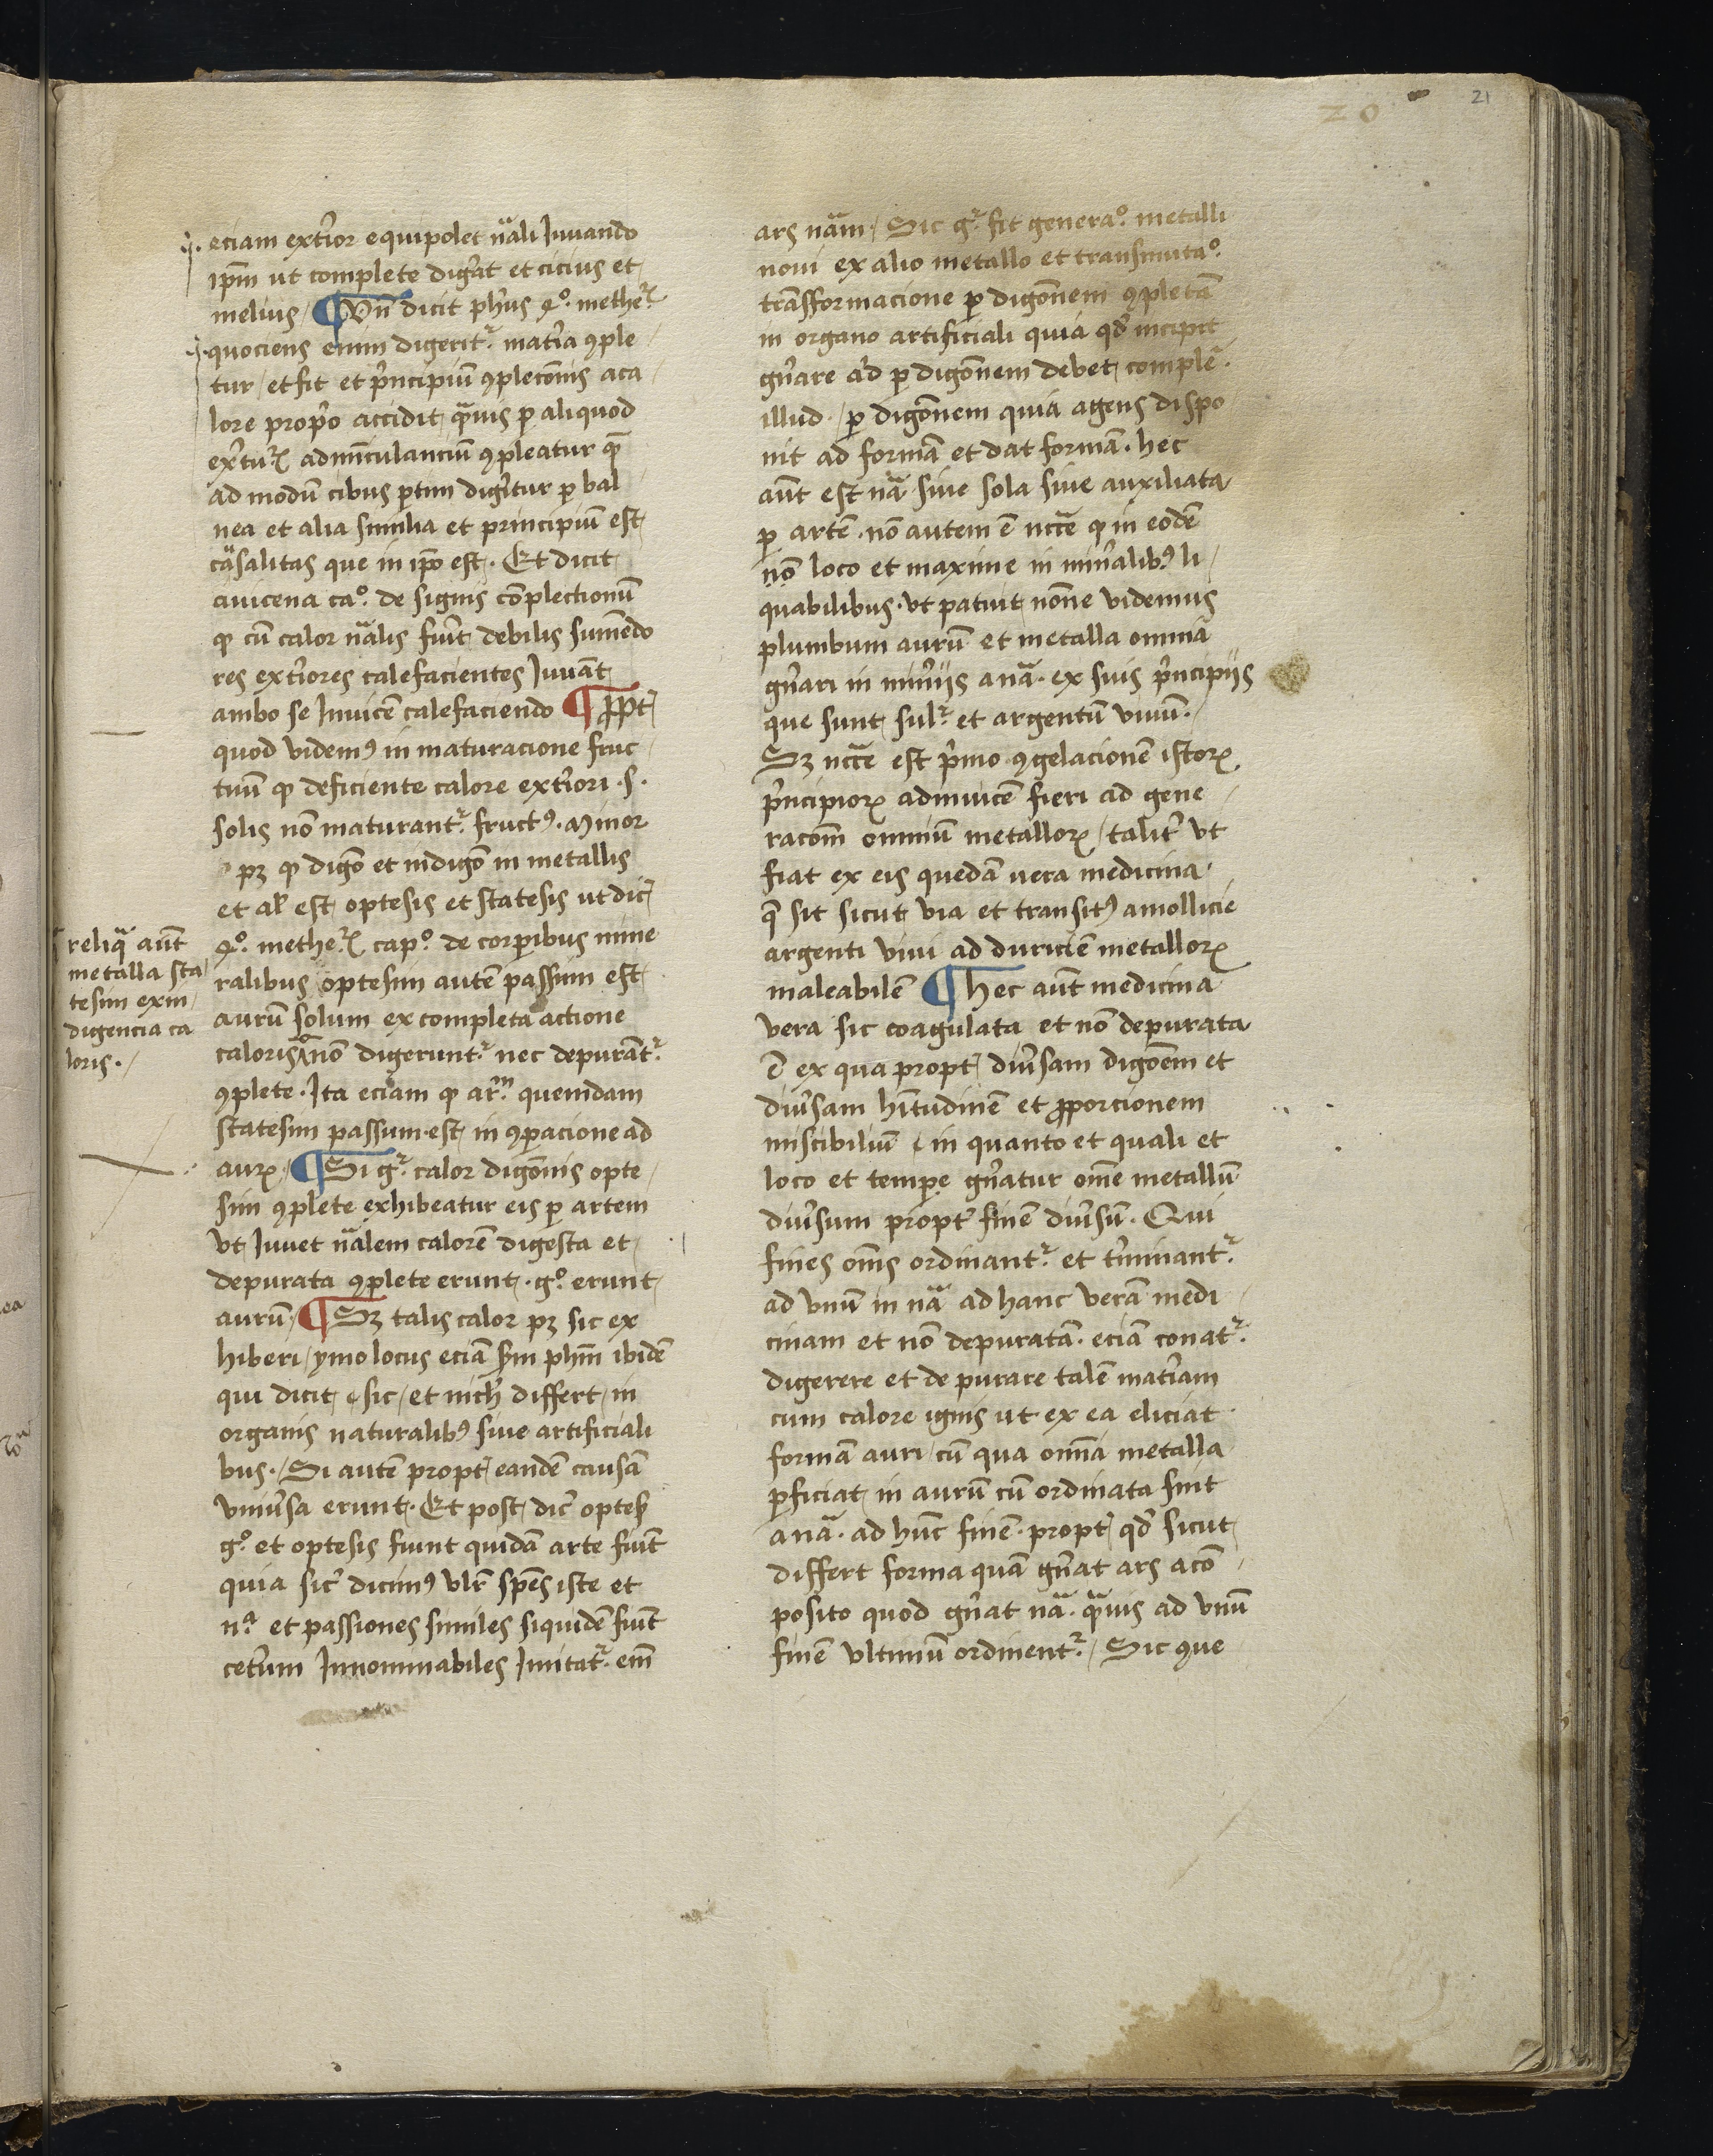 20
21
eciam extẽrior equipolet nãli Iuuando
ipm̃ ut complete dig̃at et cicius et
melius / ¶ Vñ dicit ph̃us 4º. methe.ꝝ
quociens enim digeritᷣ. mat̃ia ꝯple
tur / et fit et p̃ncipiũ ꝯplecõnis a ca
lore propi̊o accidit q̃uis ꝑ aliquod
ex̃tuꝝ adm̃iculanciũ ꝯpleatur q̃
ad modũ cibus ptim dig̃itur ꝑ bal
nea et alia similia et principiũ est
cãsalitas que in ip̃o est. Et dicit
auicena caº. de signis cõplectionũ
ꝙ cũ calor nãlis fũit debilis sumẽdo
res ext̃iores calefacientes Iuuãt
ambo se Inuicẽ calefaciendo ¶ ꝓpt̃
quod videmꝰ in maturacione fruc
tuũ ꝙ deficiente calore ext̃iori .s.
solis non maturantᷣ. fructꝰ. Minor
pꝫ ꝙ digõ et indigõ in metallis
et al̃ est optesis et statesis ut dic̃
4º. metheꝝ capº. de corꝑibus mine
ralibus optesim autẽ passim est
aurũ solum ex completa actione
caloris ^ nõ digeruntᷣ. nec depurãtᷣ.
ꝯplete. Ita eciam ꝙ ar.ᵐ quemdam
statesim passum est in ꝯparacione ad
auꝝ. / ¶ Si gᷣ. calor digõnis opte
sim ꝯplete exhibeatur eis ꝑ artem
vt Iuuet nãlem calorẽ digesta et
depurata ꝯplete erunt. gº. erunt
aurũ. ¶ Sꝫ talis calor pꝫ sic ex
hiberi / ymo locus eciã sm̃ phm̃ ibidẽ
qui dicit sic / et nich̃ differt / in
organis naturalibꝰ siue artificiali
bus. / Si autẽ propt̃ eandẽ causã
vniũsa erunt. Et post dic̃ optes̃
gº. et optesis fiunt quidã arte fiũt
quia sic̃ dicimꝰ vlr̃ sp̃es iste et
nᵃ. et passiones similes siquidẽ fiũt
cet̃um Innominabiles Imitatᷣ. em̃
reliq̃ aũt
metalla sta
tesim ex in
digencia ca
loris. /
ars nãm / Sic gᷣ. fit generaº. metalli
noui ex alio metallo et transmutaº.
trãsformacione ꝑ digõnem ꝯpletã
in organo artificiali quia qd̃ incipit
gñare ad ꝑ digõnem debet comple᷉.
illud. / ꝑ digõnem quia agens dispo
nit ad formã et dat formã. hec
aũt est nã siue sola siue auxiliata
ꝑ artẽ. nõ autem ẽ nccẽ ꝙ in eodẽ
nõ loco et maxime in min̄alibꝰ li
quabilibus. vt patuit nõne videmus
plumbum aurũ et metalla omnia
gñari in min̄ijs anã. ex suis p̃ncipijs
que sunt sulᷣ. et argentũ viuũ.
Sꝫ nccẽ est p̃mo ꝯgelacionẽ istoꝝ
p̃ncipioꝝ adinuicẽ fieri ad gene
racõm omniũ metalloꝝ / talit̃ vt
fiat ex eis quedã vera medicina
q̃ sit sicut via et transitꝰ a mollicie
argenti viui ad duriciẽ metalloꝝ
maleabilẽ ¶ Hec aũt medicina
vera sic coagulata et nõ depurata
ẽ ex qua propt̃ diũsam digõem et
diũsam hĩtudinẽ et ꝓporcionem
miscibiliũ in quanto et quali et
loco et temꝑe gñatur om̃e metallũ
diũsum propt̃ finẽ diũsũ. Qui
fines om̃s ordinantᷣ. et t̃minantᷣ.
ad vnũ in nã ad hanc verã medi
cinam et nõ depuratã. eciã conatᷣ.
digerere et depurare talẽ mat̃iam
cum calore ignis ut ex ea eliciat
formã auri / cũ qua omĩa metalla
ꝑficiat in aurũ cũ ordinata sint
anã. ad hũc finẽ. propt̃ qd̃ sicut
differt forma quã gñat ars a cõ
posito quod gñat nã. q̃uis ad vnũ
finẽ vltimũ ordinentᷣ. / Sic que